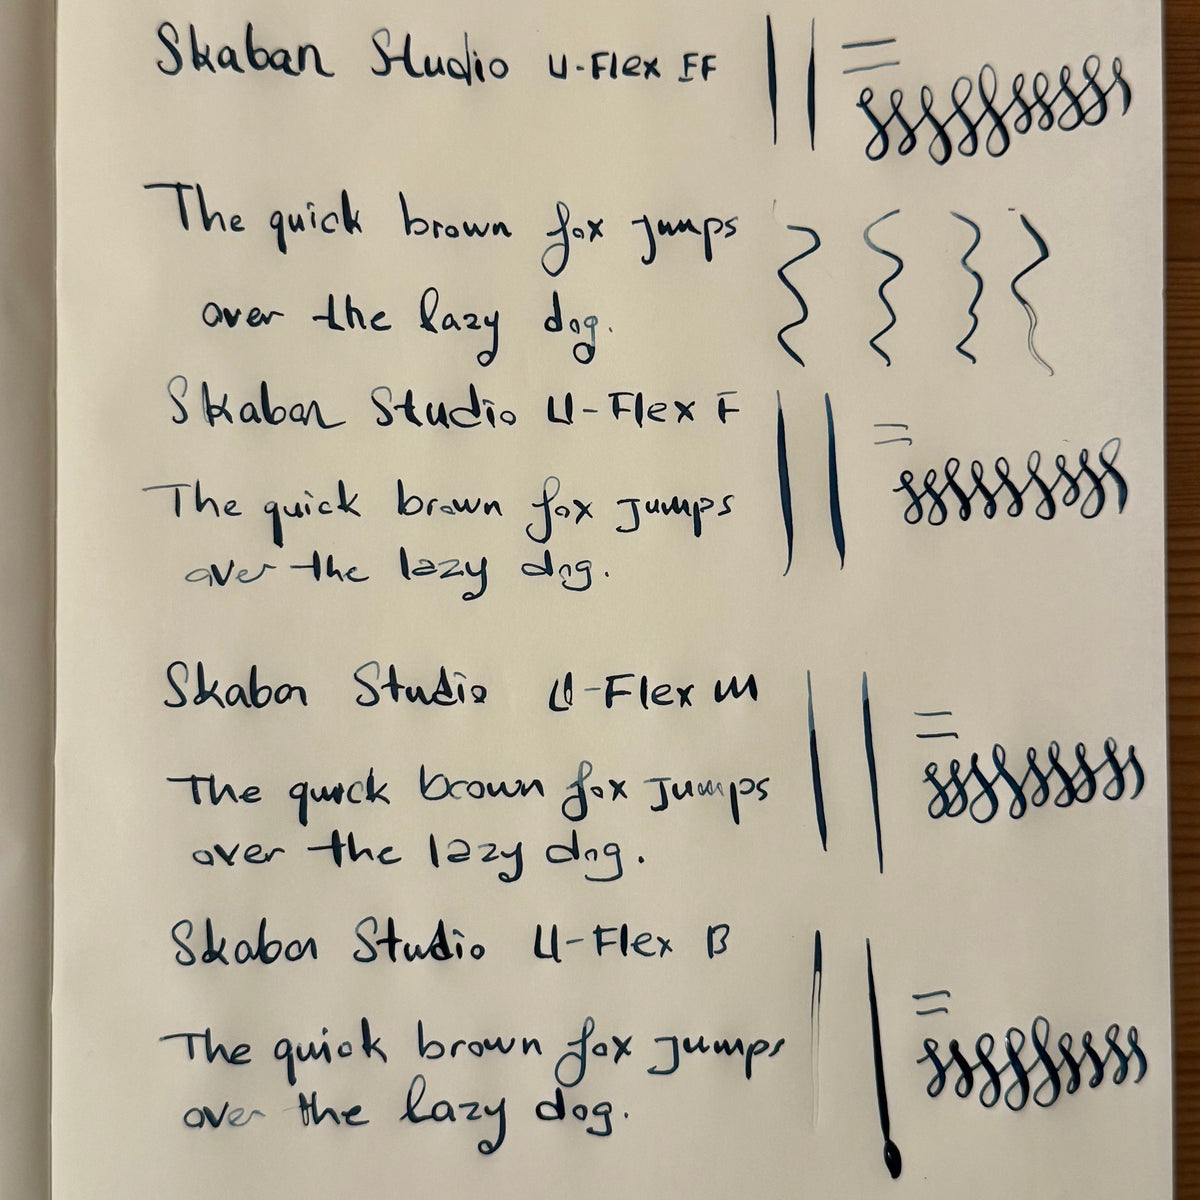 Skaban Studio U-Flex EF
The quick brown fox jumps
over the lazy dog.
Skaban Studio U-Flex F
The quick brown fox jumps
over the lazy dog.
Skaban Studio U-Flex M
The quick brown fox jumps
over the lazy dog.
Skaban Studio U-Flex B
The quick brown fox jumps
over the lazy dog.